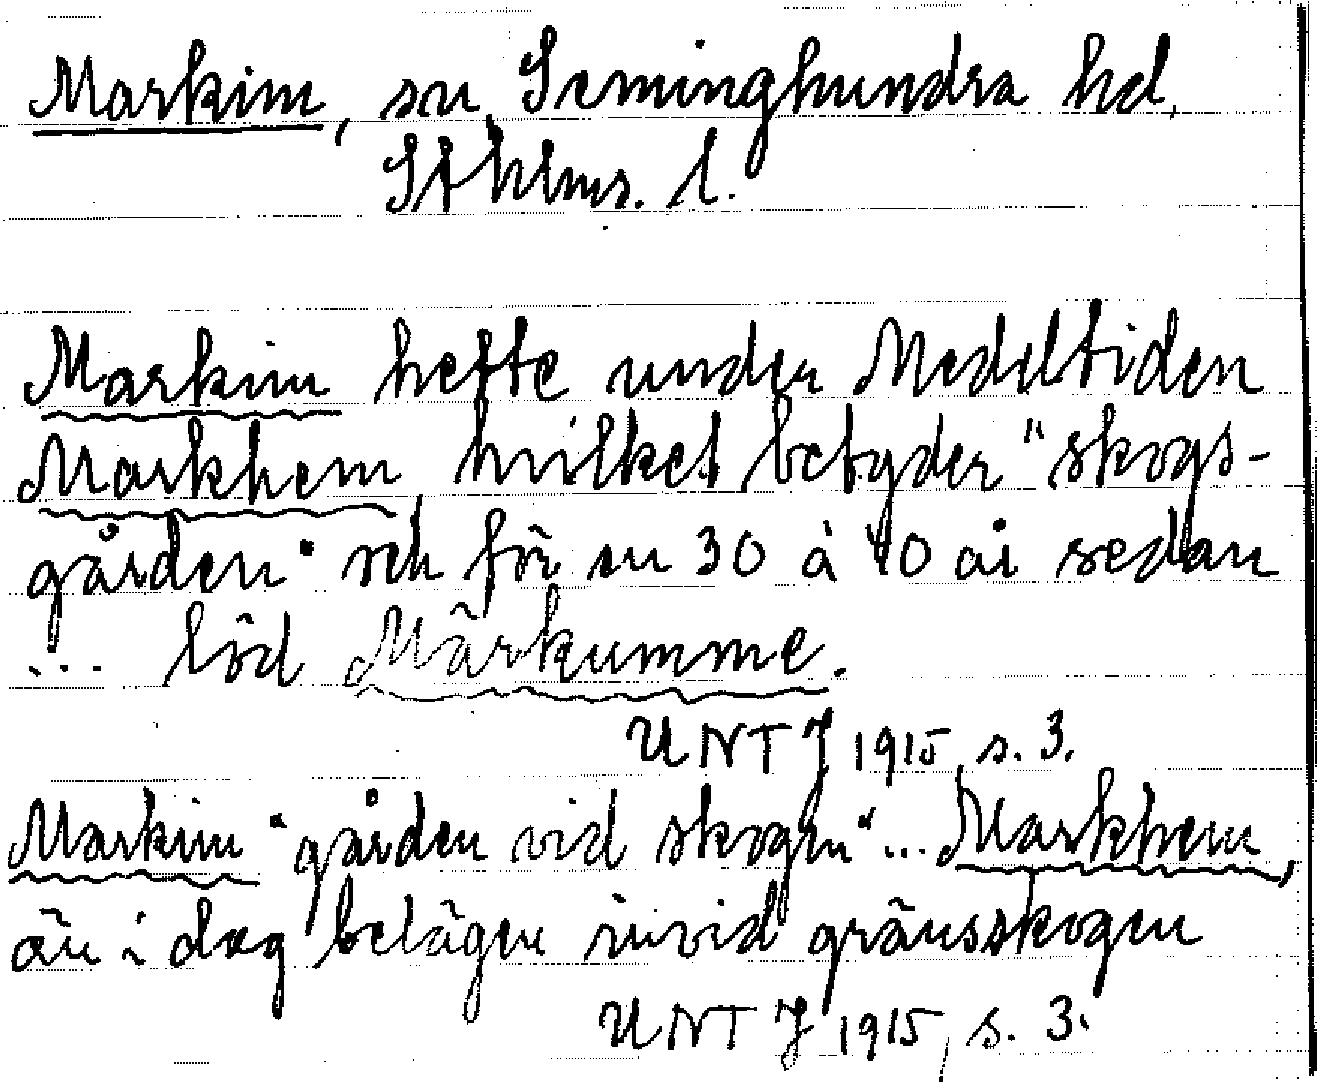 Markim, sn, Seminghundra hd,
Sthlms. l.
Markim hette under Medeltiden
Markhem, hvilket betyder "skogs-
gården" och för en 30 à 40 år sedan
... löd Märkumme.
UNT J 1915, s. 3.
Markim "gården vid skogen" ... Markhem,
än i dag belägen invid gränsskogen
UNT J 1915, s. 3.